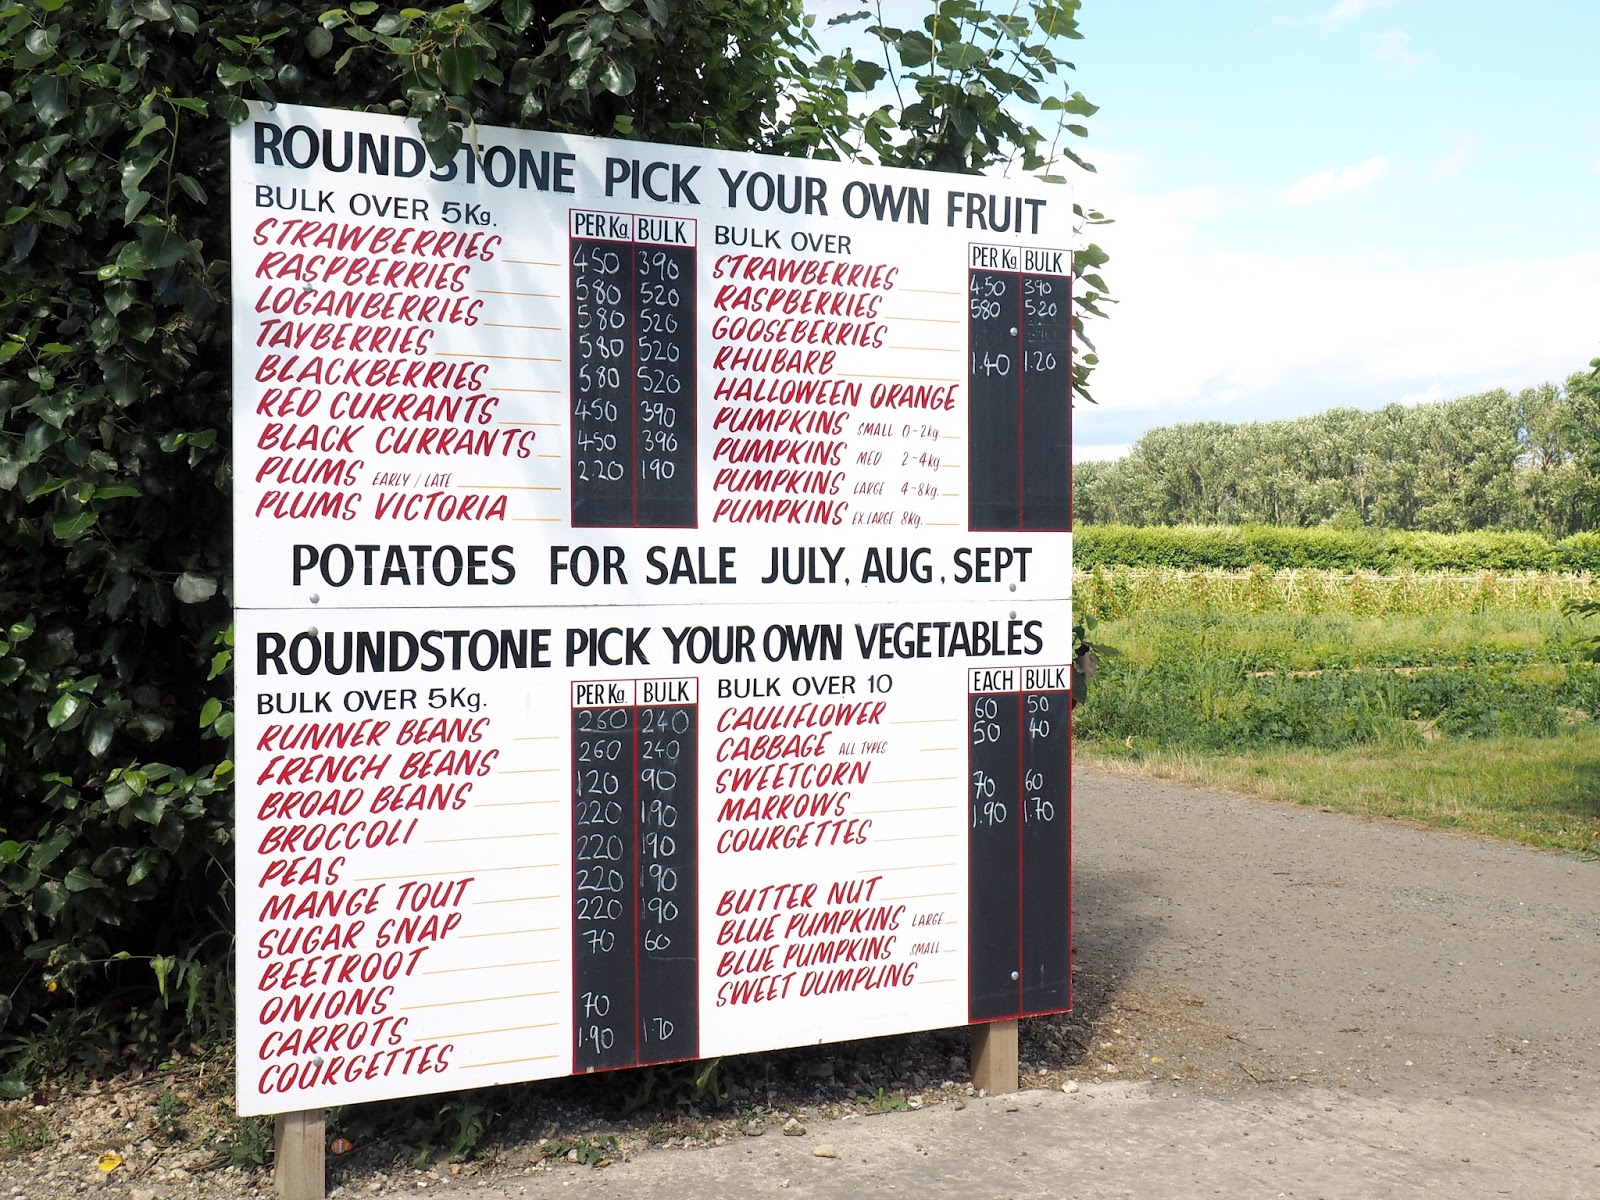 ROUNDSTONE PICK YOUR OWN FRUIT
BULK OVER 5Kg. PER Kg. BULK
STRAWBERRIES 450 390
RASPBERRIES 580 520
LOGANBERRIES 580 520
TAYBERRIES 580 520
BLACKBERRIES 580 520
RED CURRANTS 450 390
BLACK CURRANTS 450 390
PLUMS EARLY / LATE 2.20 190
PLUMS VICTORIA
BULK OVER PER Kg. BULK
STRAWBERRIES 4.50 390
RASPBERRIES 580 520
GOOSEBERRIES
RHUBARB 1.40 1.20
HALLOWEEN ORANGE
PUMPKINS SMALL 0-2kg.
PUMPKINS MED 2-4kg.
PUMPKINS LARGE 4-8kg.
PUMPKINS EX.LARGE 8kg.
POTATOES FOR SALE JULY, AUG, SEPT
ROUNDSTONE PICK YOUR OWN VEGETABLES
BULK OVER 5Kg. PER Kg. BULK
RUNNER BEANS 260 240
FRENCH BEANS 260 240
BROAD BEANS 120 90
BROCCOLI 220 190
PEAS 220 190
MANGE TOUT 220 190
SUGAR SNAP 220 190
BEETROOT 70 60
ONIONS
CARROTS 70
COURGETTES 1.90 1.70
BULK OVER 10 EACH BULK
CAULIFLOWER 60 50
CABBAGE ALL TYPES 50 40
SWEETCORN
MARROWS 70 60
COURGETTES 1.90 1.70
BUTTER NUT
BLUE PUMPKINS LARGE
BLUE PUMPKINS SMALL
SWEET DUMPLING